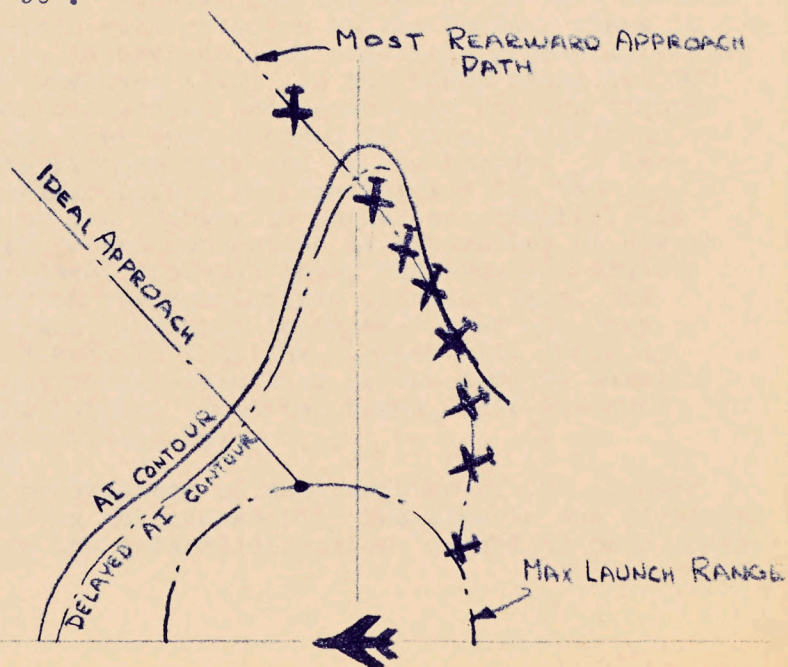 MOST REARWARD APPROACH
PATH
IDEAL APPROACH
AI CONTOUR
DELAYED AI CONTOUR
MAX LAUNCH RANGE